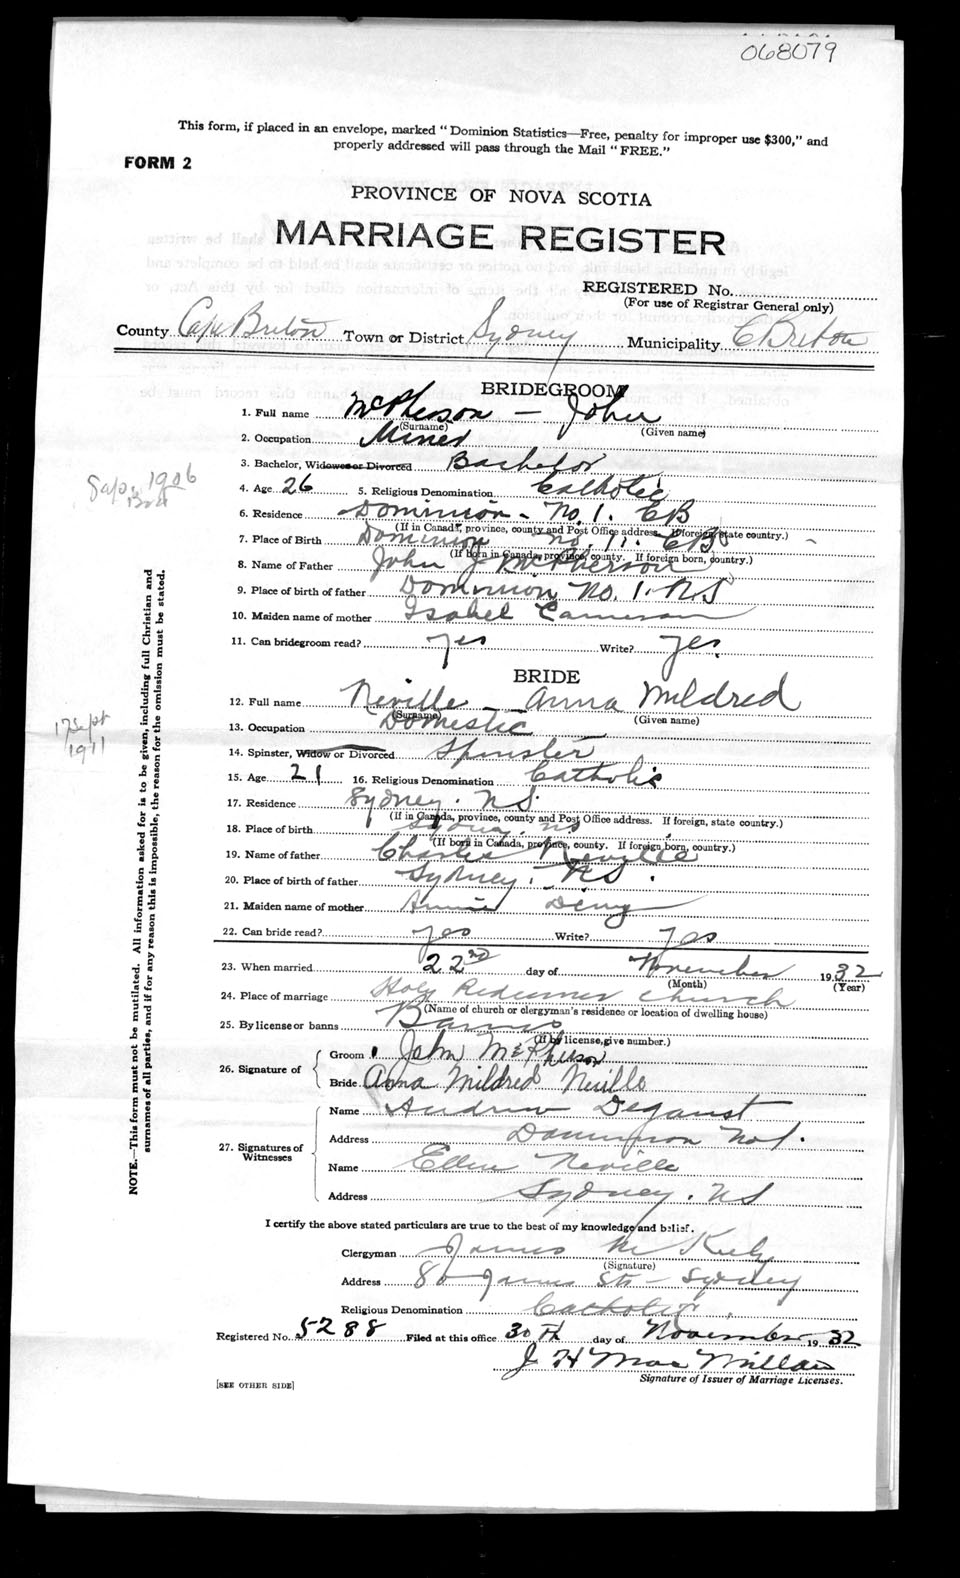 068079
This form, if placed in an envelope, marked " Dominion Statistics—Free, penalty for improper use $300," and
properly addressed will pass through the Mail " FREE."
FORM 2
PROVINCE OF NOVA SCOTIA
MARRIAGE REGISTER
REGISTERED No.
(For use of Registrar General only)
County Cape Breton Town or District Sydney Municipality C Breton
BRIDEGROOM
1. Full name McPherson — John
(Surname) (Given name)
2. Occupation Miner
3. Bachelor, Widower or Divorced Bachelor
4. Age 26 5. Religious Denomination Catholic
1906
6. Residence Dominion - No. 1. CB
(If in Canada, province, county and Post Office address. If foreign, state country.)
7. Place of Birth Dominion No. 1. CB
(If born in Canada, province, county. If foreign born, country.)
8. Name of Father John J McPherson
9. Place of birth of father Dominion No. 1. N.S
10. Maiden name of mother Isabel Cameron
11. Can bridegroom read? yes Write? yes.
BRIDE
12. Full name Neville — Anna Mildred
(Surname) (Given name)
13. Occupation Domestic
14. Spinster, Widow or Divorced Spinster
17 Sept
1911
15. Age 21 16. Religious Denomination Catholic
17. Residence Sydney. N.S.
(If in Canada, province, county and Post Office address. If foreign, state country.)
18. Place of birth Sydney. NS
(If born in Canada, province, county. If foreign born, country.)
19. Name of father Charles Neville
20. Place of birth of father Sydney. N.S.
21. Maiden name of mother Annie
22. Can bride read? yes Write? yes
23. When married 22nd day of November 1932
(Month) (Year)
24. Place of marriage Holy Redeemer Church
(Name of church or clergyman's residence or location of dwelling house)
25. By license or banns Banns
(If by license, give number.)
26. Signature of
Groom John McPherson
Bride Anna Mildred Neville
27. Signatures of
Witnesses
Name Andrew
Address Dominion No 1.
Name Ellen Neville
Address Sydney. N.S
I certify the above stated particulars are true to the best of my knowledge and belief.
Clergyman James M
(Signature)
Address James St. — Sydney
Religious Denomination Catholic.
Registered No. 5288 Filed at this office 30th day of November 1932
J H MacMillan
Signature of Issuer of Marriage Licenses.
[SEE OTHER SIDE]
NOTE.—This form must not be mutilated. All information asked for is to be given, including full Christian and
surnames of all parties, and if for any reason this is impossible, the reason for the omission must be stated.